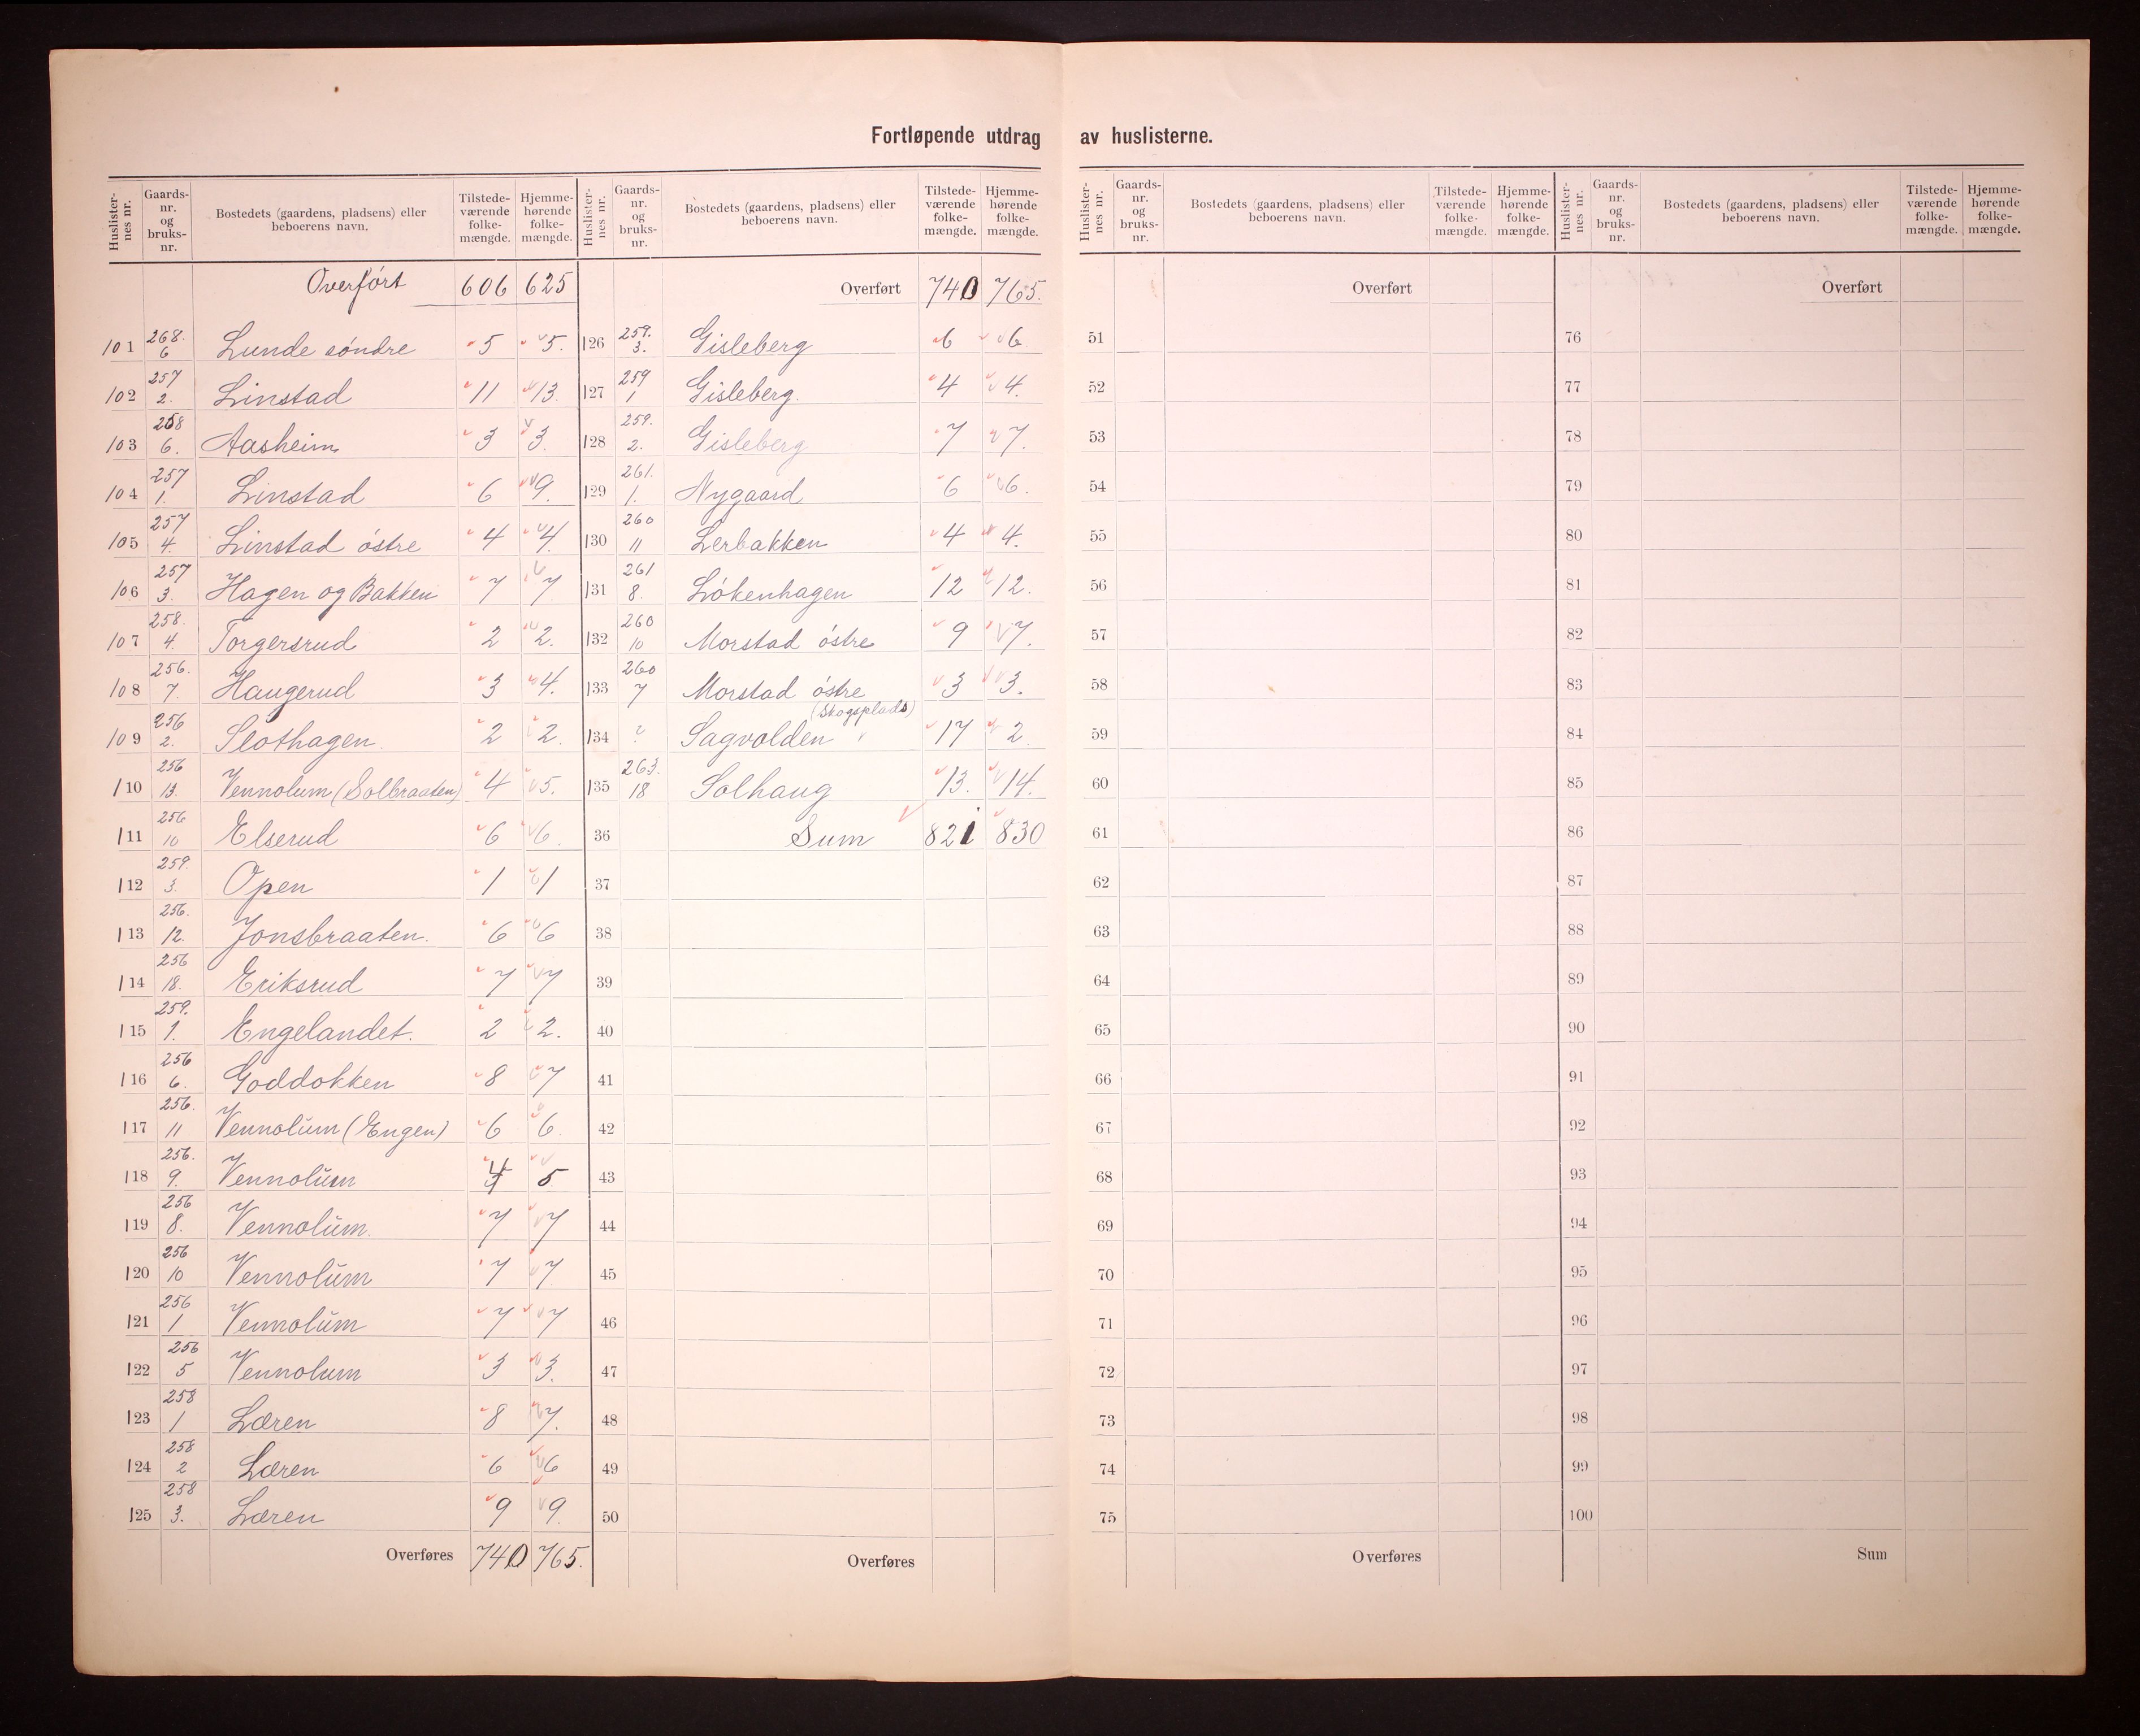 Fortløpende utdrag av huslisterne.
Huslisternes nr. Gaards-nr. og bruks-nr. Bostedets (gaardens, pladsens) eller beboerens navn. Tilstede-værende folke-mængde. Hjemme-hørende folke-mængde.
Overført 606 625
101 268. 6 Lunde søndre 5 5.
102 257 2. Linstad 11 13
103 258 6. Aasheim 3 3.
104 257 1. Linstad 6 9.
105 257 4. Linstad østre 4 4.
106 257 3. Hagen og Bakken 7 7
107 258. 4. Torgersrud 2 2.
108 256. 7. Haugerud 3 4.
109 256 2. Slothagen. 2 2.
110 256 13. Vennolum (Solbraaten) 4 5.
111 256 10 Elserud 6 6.
112 259. 3. Open 1 1
113 256. 12. Jonsbraaten. 6 6
114 256 18. Eriksrud 7 7
115 259. 1. Engelandet. 2 2.
116 256 6. Goddokken 8 7
117 256. 11 Vennolum (Engen) 6 6.
118 256. 9. Vennolum 4 5
119 256 8. Vennolum. 7 7
120 256 10 Vennolum 7 7
121 256 1 Vennolum 7 7
122 256 5 Vennolum 3 3.
123 258 1 Læren 8 7.
124 258 2 Læren 6 6
125 258 3. Læren 9 9.
Overføres 740 765.
Huslisternes nr. Gaards-nr. og bruks-nr. Bostedets (gaardens, pladsens) eller beboerens navn. Tilstede-værende folke-mængde. Hjemme-hørende folke-mængde.
Overført 740 765.
126 259. 3. Gisleberg 6 6.
127 259 1 Gisleberg. 4 4.
128 259. 2. Gisleberg 7 7.
129 261. 1. Nygaard 6 6.
130 260 11 Lerbakken 4 4.
131 261 8. Løkenhagen 12 12.
132 260 10 Morstad østre 9 7.
133 260 7 Morstad østre 3 3.
(Skogsplads)
134 ? Sagvolden 17 2
135 263. 18 Solhaug 13. 14.
36 Sum 821 830
37
38
39
40
41
42
43
44
45
46
47
48
49
50
Overføres
Huslisternes nr. Gaards-nr. og bruks-nr. Bostedets (gaardens, pladsens) eller beboerens navn. Tilstede-værende folke-mængde. Hjemme-hørende folke-mængde.
Overført
51
52
53
54
55
56
57
58
59
60
61
62
63
64
65
66
67
68
69
70
71
72
73
74
75
Overføres
Huslisternes nr. Gaards-nr. og bruks-nr. Bostedets (gaardens, pladsens) eller beboerens navn. Tilstede-værende folke-mængde. Hjemme-hørende folke-mængde.
Overført
76
77
78
79
80
81
82
83
84
85
86
87
88
89
90
91
92
93
94
95
96
97
98
99
100
Sum